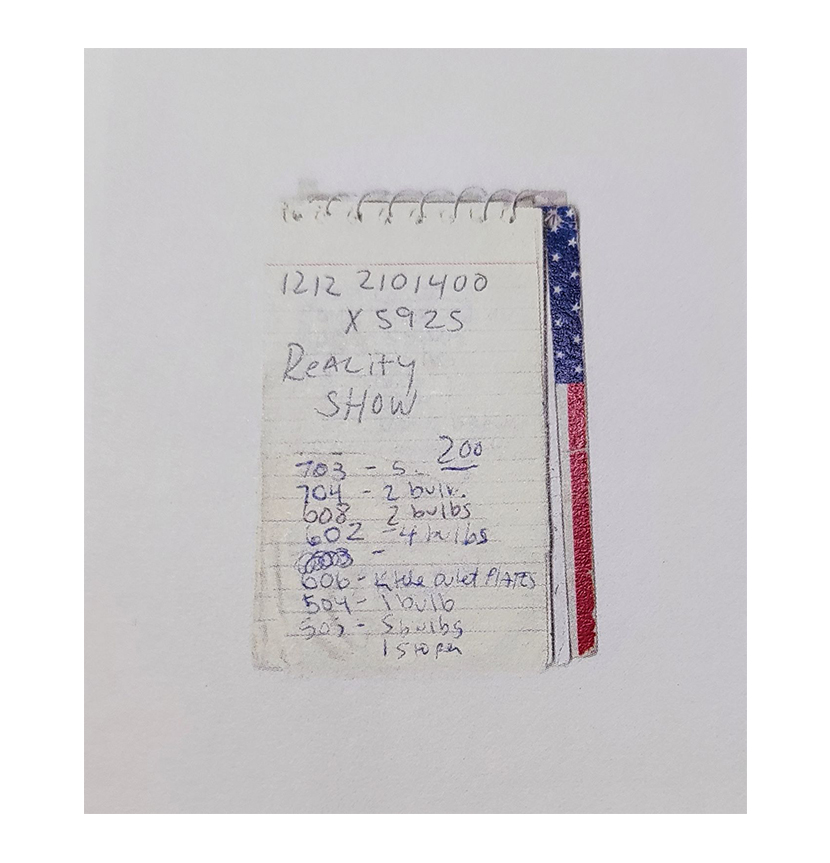 1212 2101400
X 5925
REALITY
SHOW
200
703 - 5
704 - 2 bulb.
608 2 bulbs
602 - 4 bulbs
606 - outlet PLATES
504 - 1 bulb
503 - 5 bulbs
1 stopper